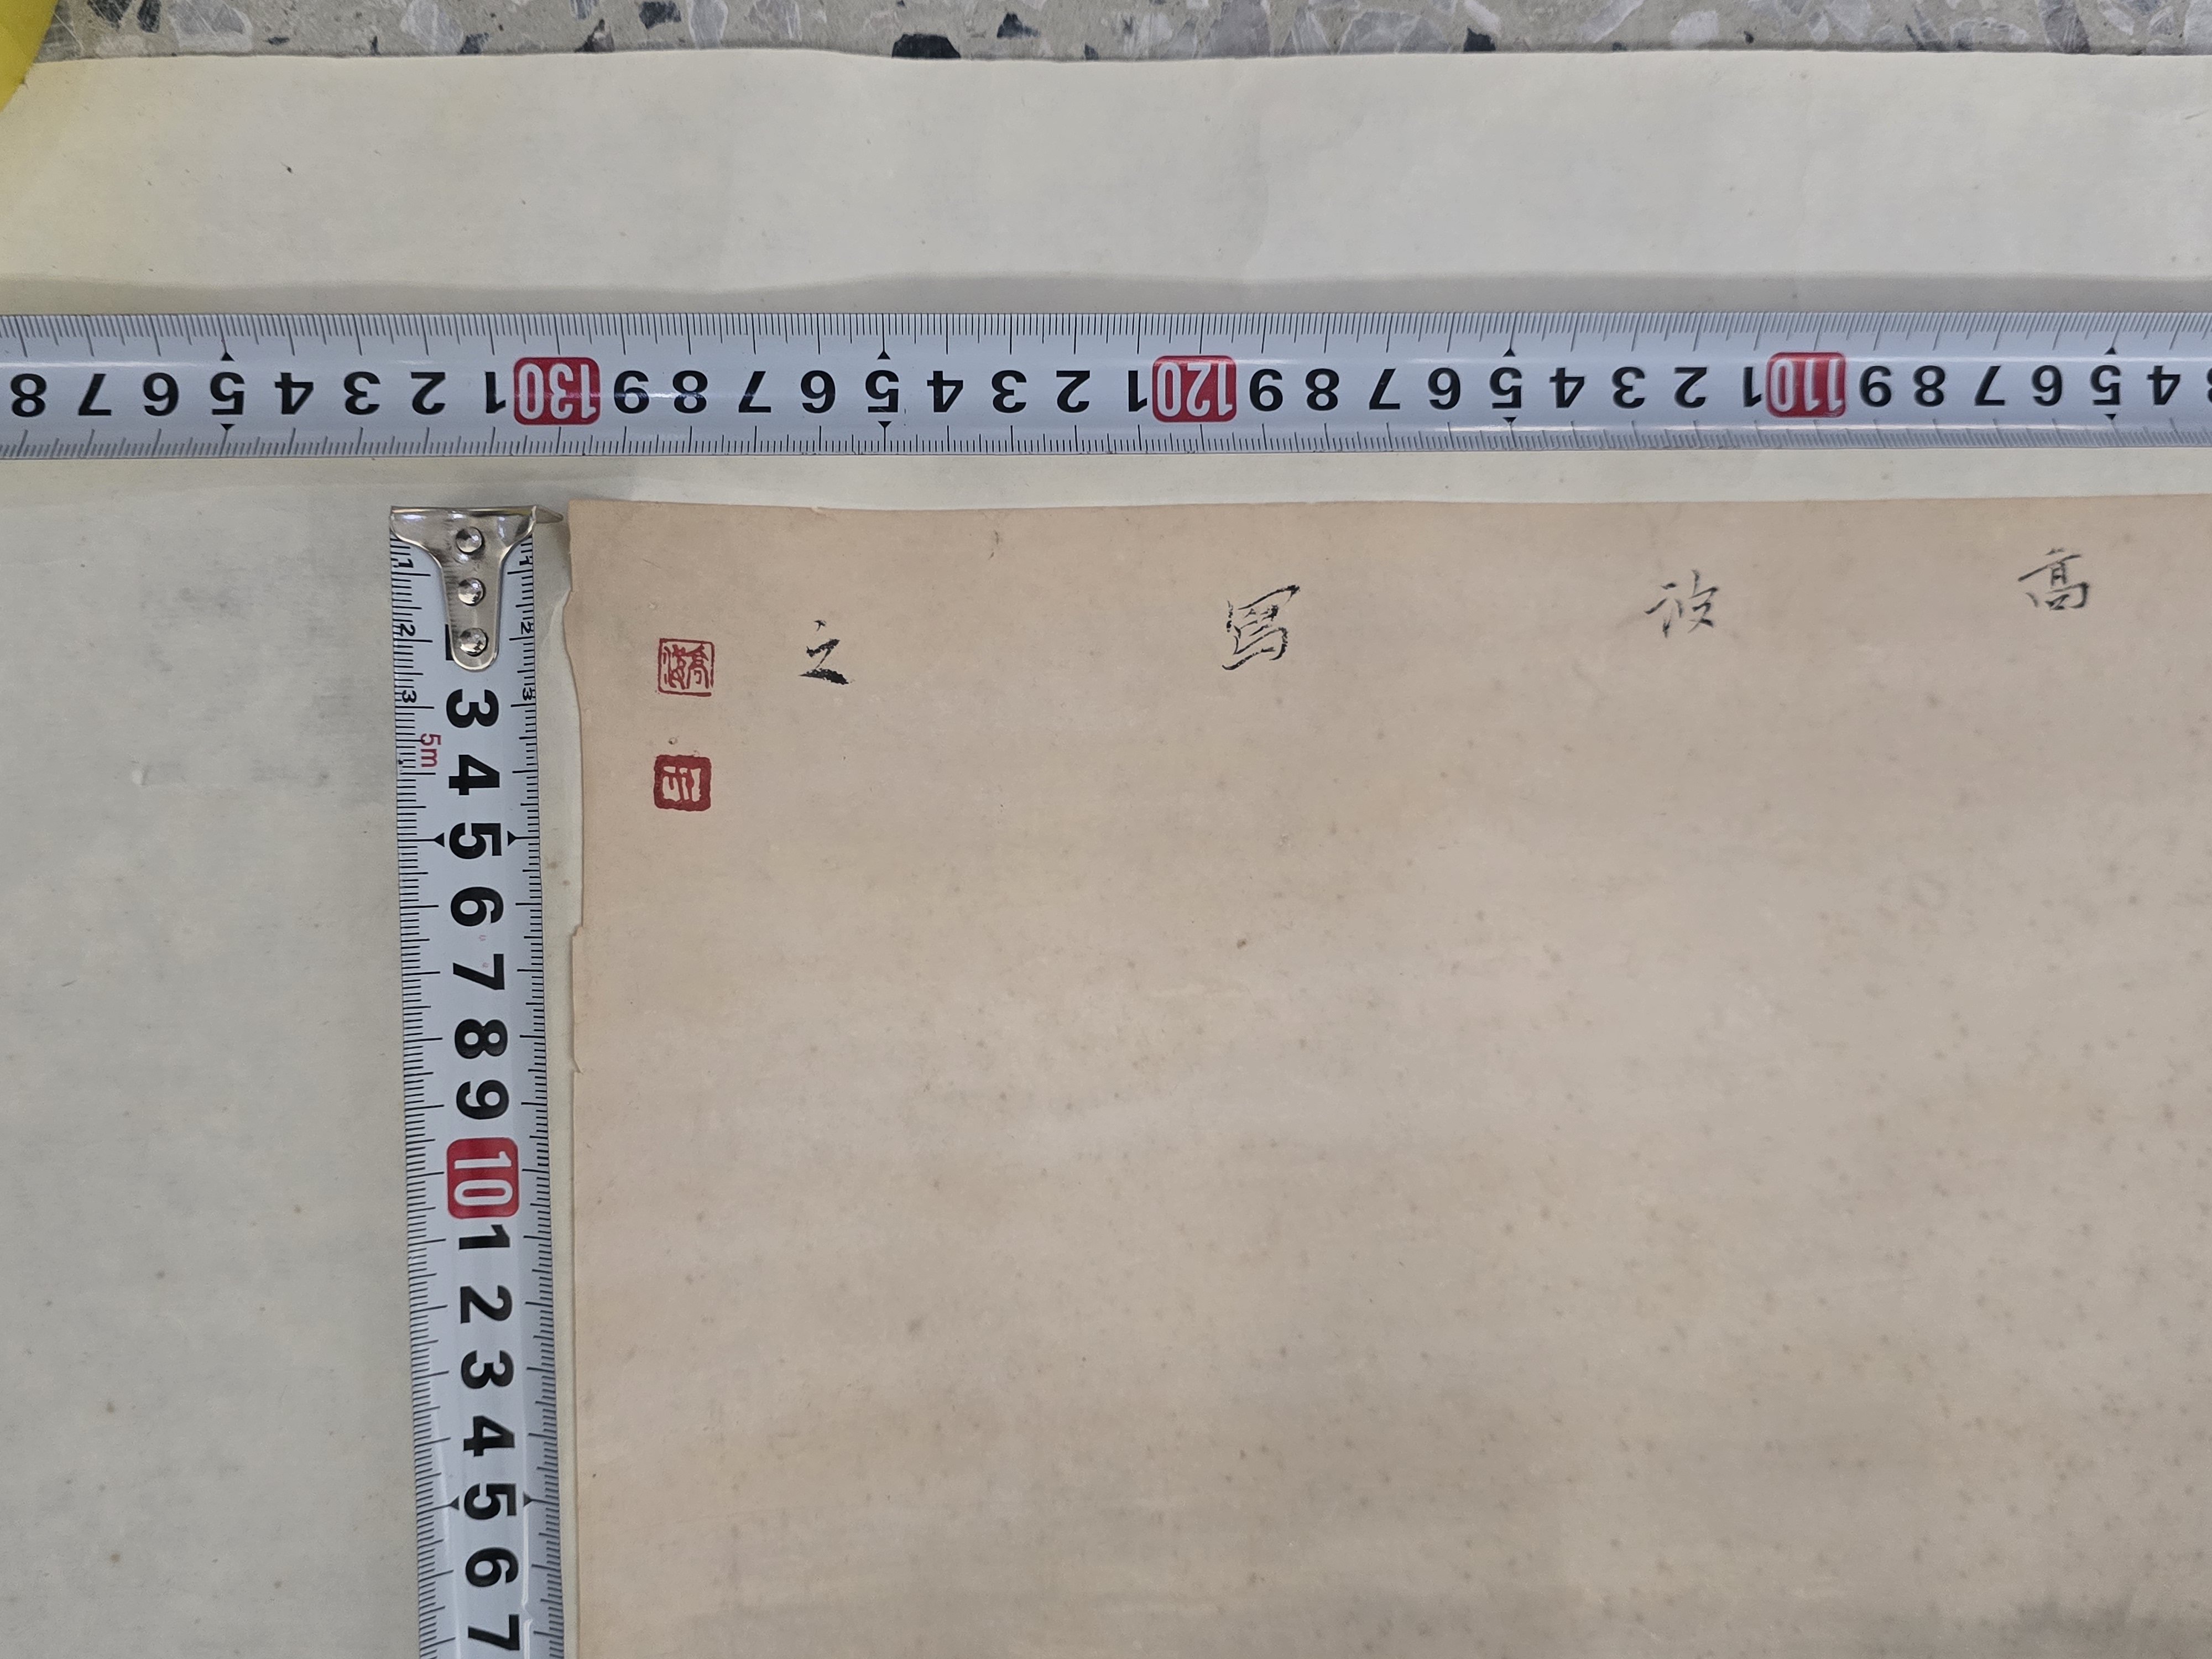 4 5 6 7 8 9 110 1 2 3 4 5 6 7 8 9 120 1 2 3 4 5 6 7 8 9 130 1 2 3 4 5 6 7 8
1 2 3
5m
3 4 5 6 7 8 9 10 1 2 3 4 5 6 7
1 2 3
高
波
寫
之